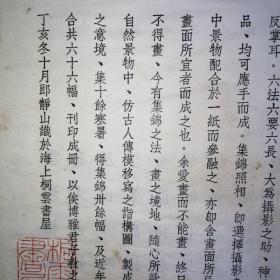 反掌耳．六法六要六長、大為攝影之助、
品、均可應手而成．集錦照相 即選擇攝影
中景物配合於一紙而參融之、亦卽舍畫面所
畫面所宜者而成之也．余愛畫而不能畫 終日
不得畫、今有集錦之法、畫之境地、隨心所
自然景物中、仿古人傳模移寫之詣構圖 製成
之意境、集十餘寒暑、得集錦卅餘幅、及近年
合共六十六幅、刊印成冊、以俟博雅君子教之
丁亥冬十月郎靜山識於海上桐雲書屋